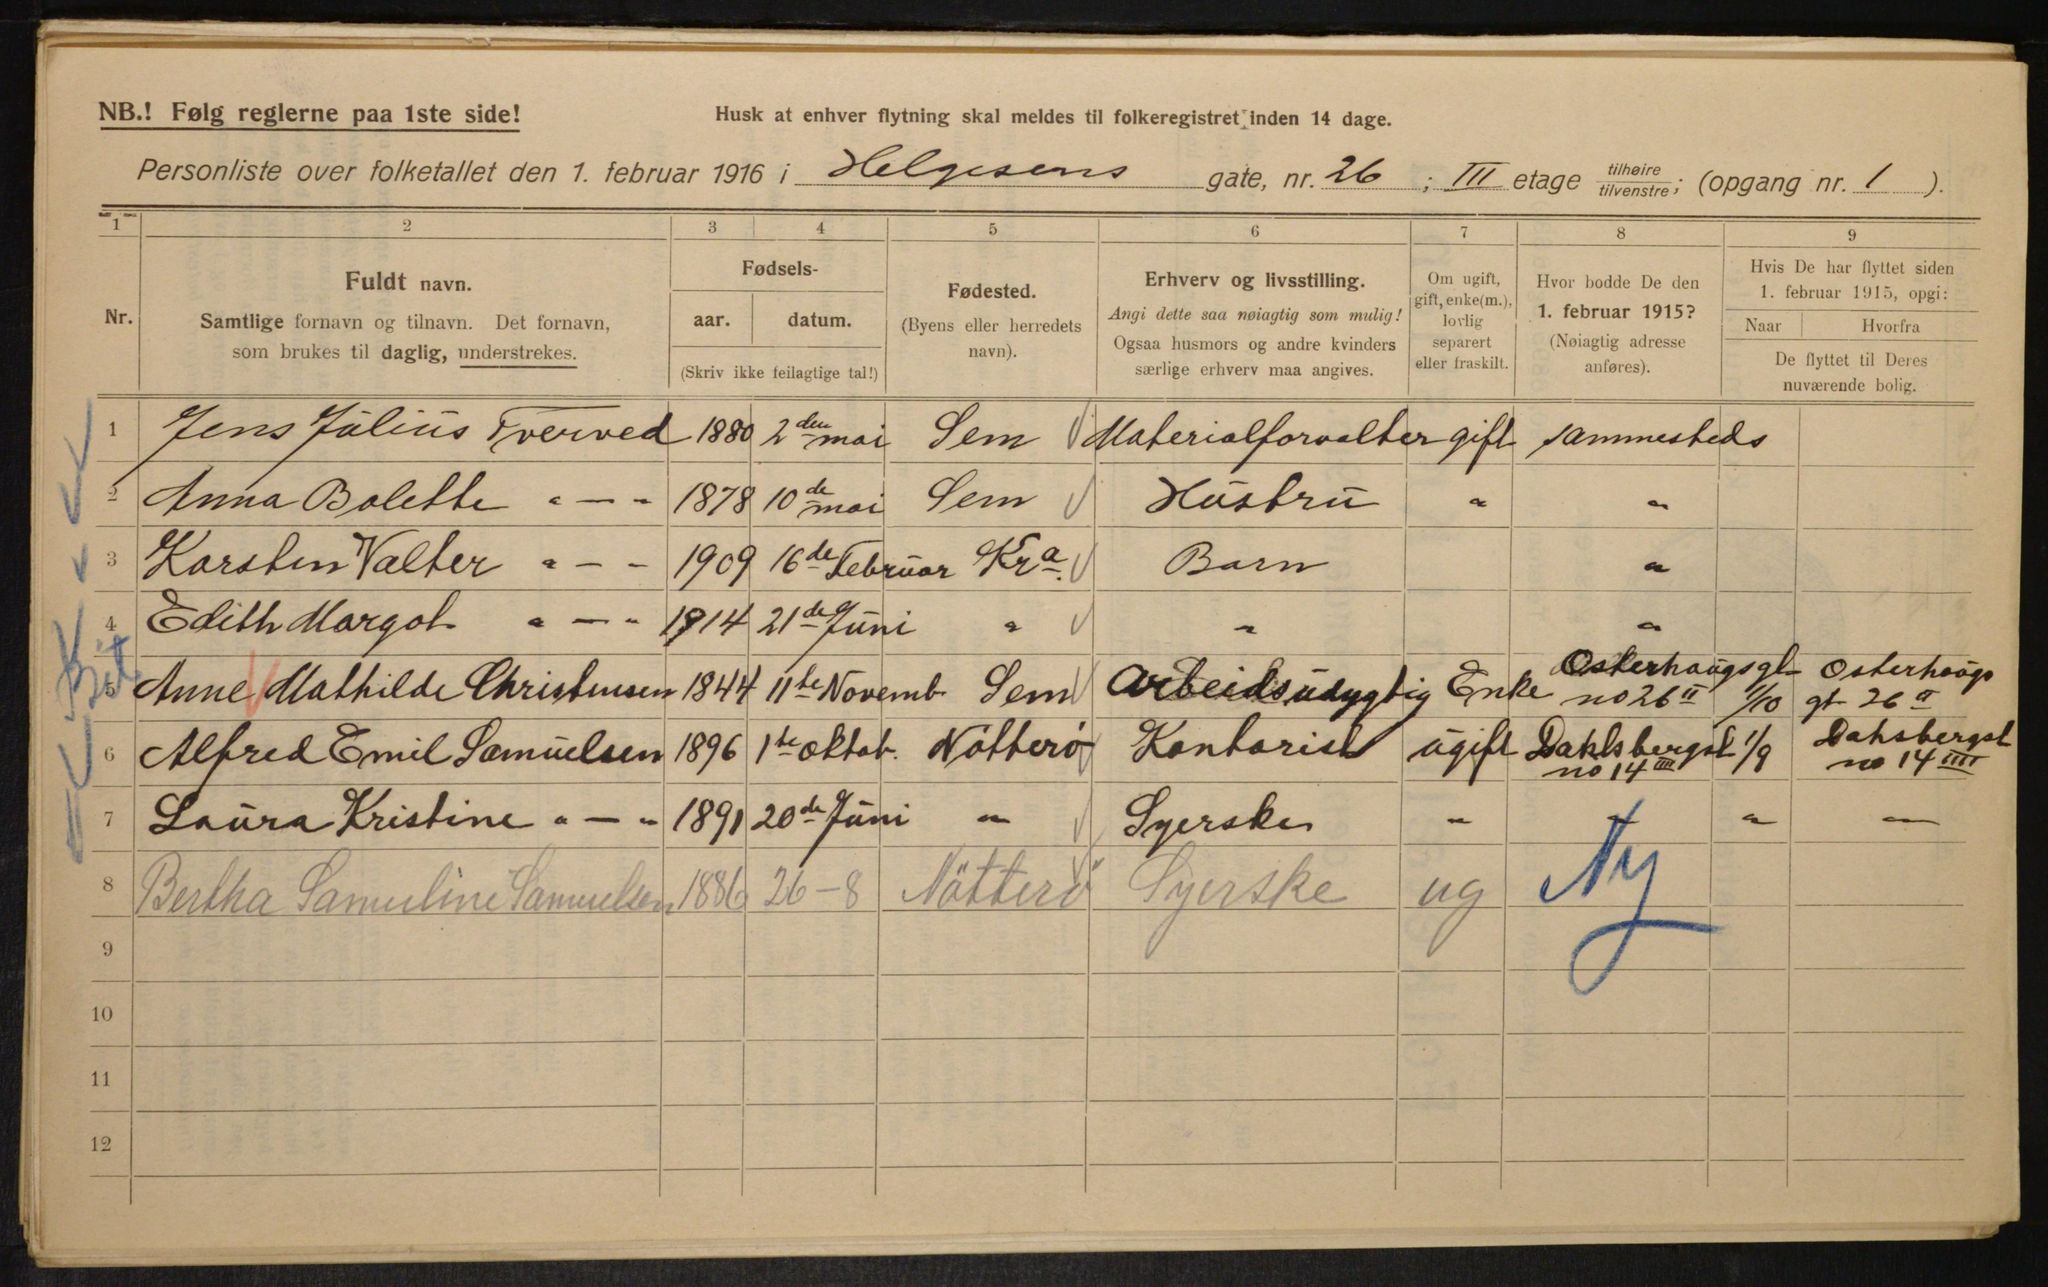 NB.! Følg reglerne paa 1ste side! Husk at enhver flytning skal meldes til folkeregistret inden 14 dage.
Personliste over folketallet den 1. februar 1916 i Helgesens gate, nr. 26 ; III etage tilhøire tilvenstre; (opgang nr. 1 ).
1 2 3 4 5 6 7 8 9
Nr.
Fuldt navn.
Samtlige fornavn og tilnavn. Det fornavn,
som brukes til daglig, understrekes.
Fødsels-
aar. datum.
(Skriv ikke feilagtige tal!)
Fødested.
(Byens eller herredets
navn).
Erhverv og livsstilling.
Angi dette saa nøiagtig som mulig!
Ogsaa husmors og andre kvinders
særlige erhverv maa angives.
Om ugift,
gift, enke(m.),
lovlig
separert
eller fraskilt.
Hvor bodde De den
1. februar 1915?
(Nøiagtig adresse
anføres).
Hvis De har flyttet siden
1. februar 1915, opgi:
Naar Hvorfra
De flyttet til Deres
nuværende bolig.
1 Jens Julius Tverved 1880 2den mai Sem Materialforvalter gift sammesteds
2 Anna Bolette " — " 1878 10de mai Sem Hustru " "
3 Karsten Valter " — — 1909 16de Februar Kra. Barn "
4 Edith Margot " — " 1914 21de Juni " " "
5 Anne Mathilde Christensen 1844 11te Novemb. Sem Arbeidsudygtig Enke Osterhaugsgt no 26 II 1/10 Osterhaugs gt 26 II
6 Alfred Emil Samuelsen 1896 1te oktob. Nötterö Kontorist ugift Dahlsbergst no 14 IIII 1/9 Dahsbergst no 14 IIII
7 Laura Kristine " — " 1891 20de Juni " Syerske " " " —
8 Bertha Samuline Samuelsen 1886 26-8 Nötterö Syerske ug Ny
9
10
11
12